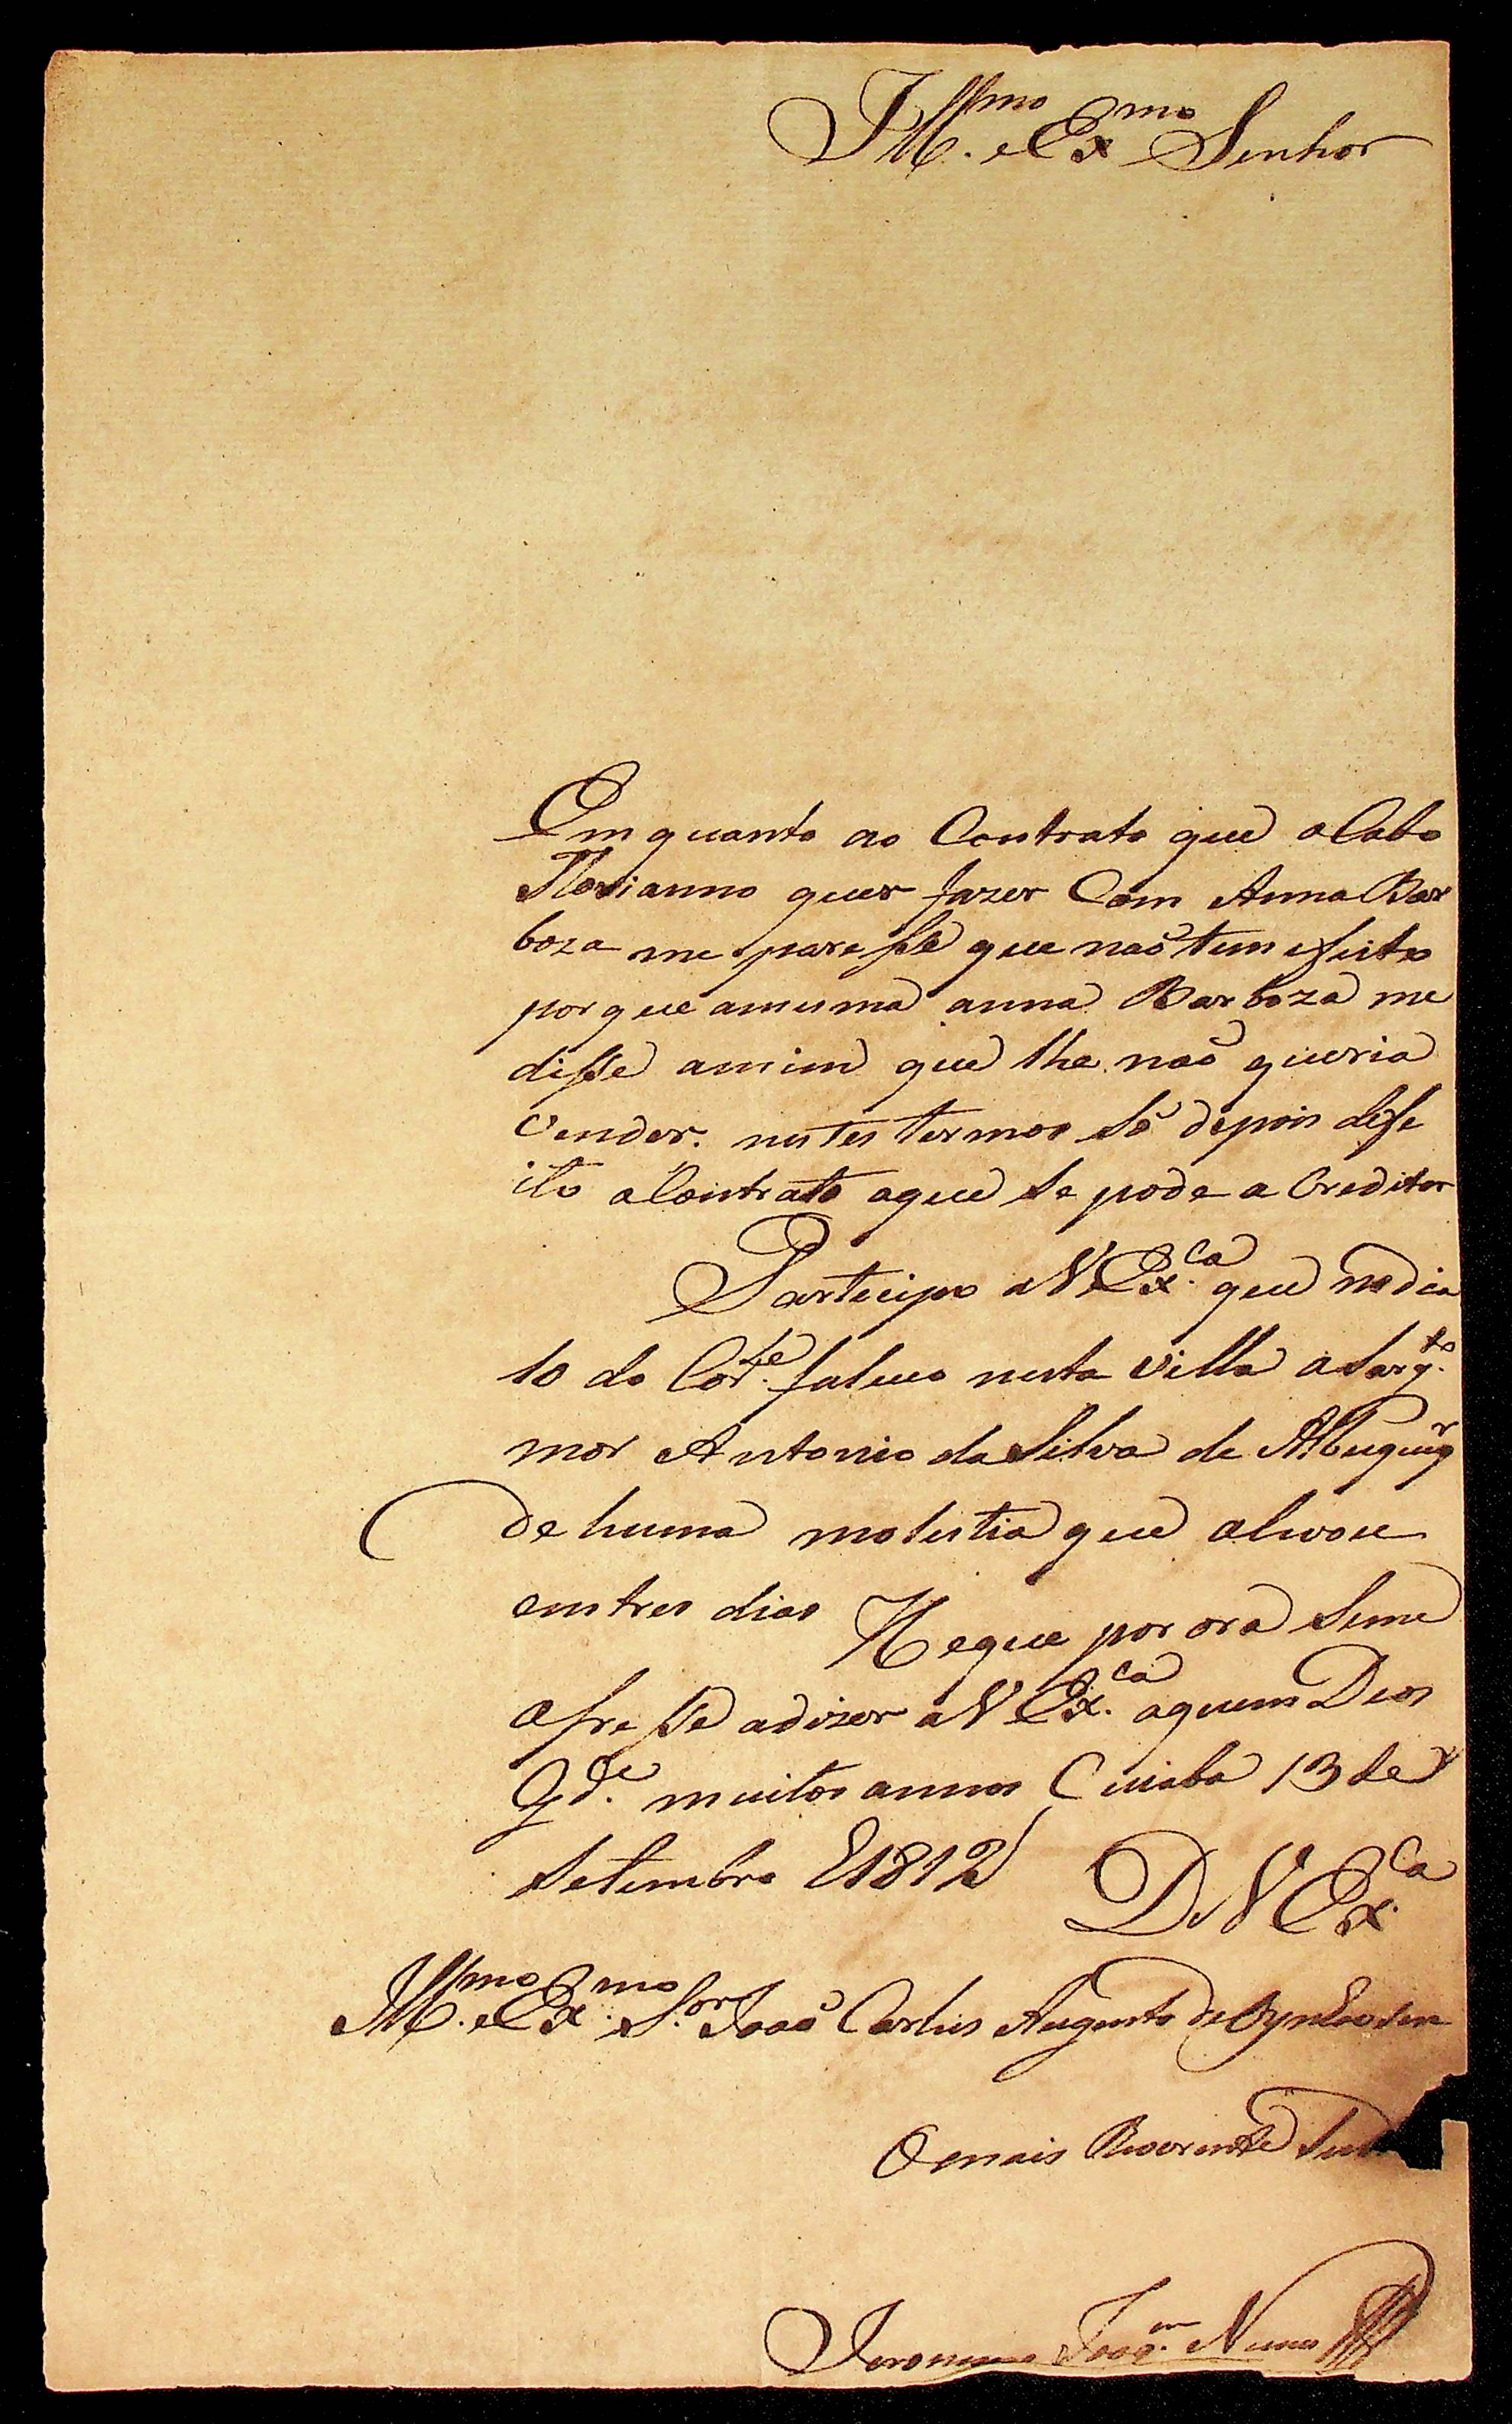 Ill.mo e Ex.mo Senhor
Emquanto ao Contrato que o Cabo
Florianno quer fazer Com Anna Bar
boza me paresse que naõ tem efeito
porque amesma anna Barboza me
disse amim que lhe naõ queria
vender. nestes termos Só depois defe
ito o Contrato aque se pode a Creditar
Partecipo a V Ex.ca que no dia
10 do Cor.te faleceo nesta Villa o Sarg.to
mor Antonio da Silva de Albuquerq
de huma molestia que olevou
em tres dias He o que por ora Seme
ofresse adizer a V Ex.ca aquem Deos
G.de muitos annos Cuiaba 13 de
Setembro E1812
D V Ex.ca
Ill.mo e Ex.mo S.or Joaõ Carlus Augusto de Oynhosem
O mais Reverente
Jeronimo Joaq.m Nunes